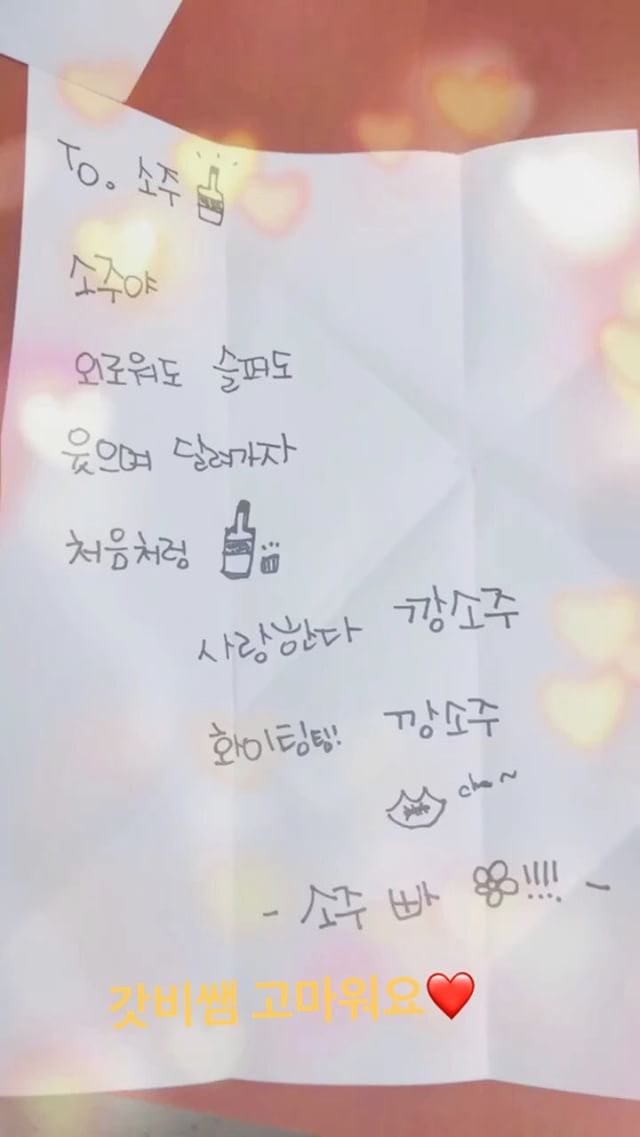 To. 소주
소주야
외로워도 슬퍼도
웃으며 달려가자
처음처럼
사랑한다 깡소주
화이팅팅!! 깡소주
- 소주 빠 !!!! -
갓비쌤 고마워요❤️